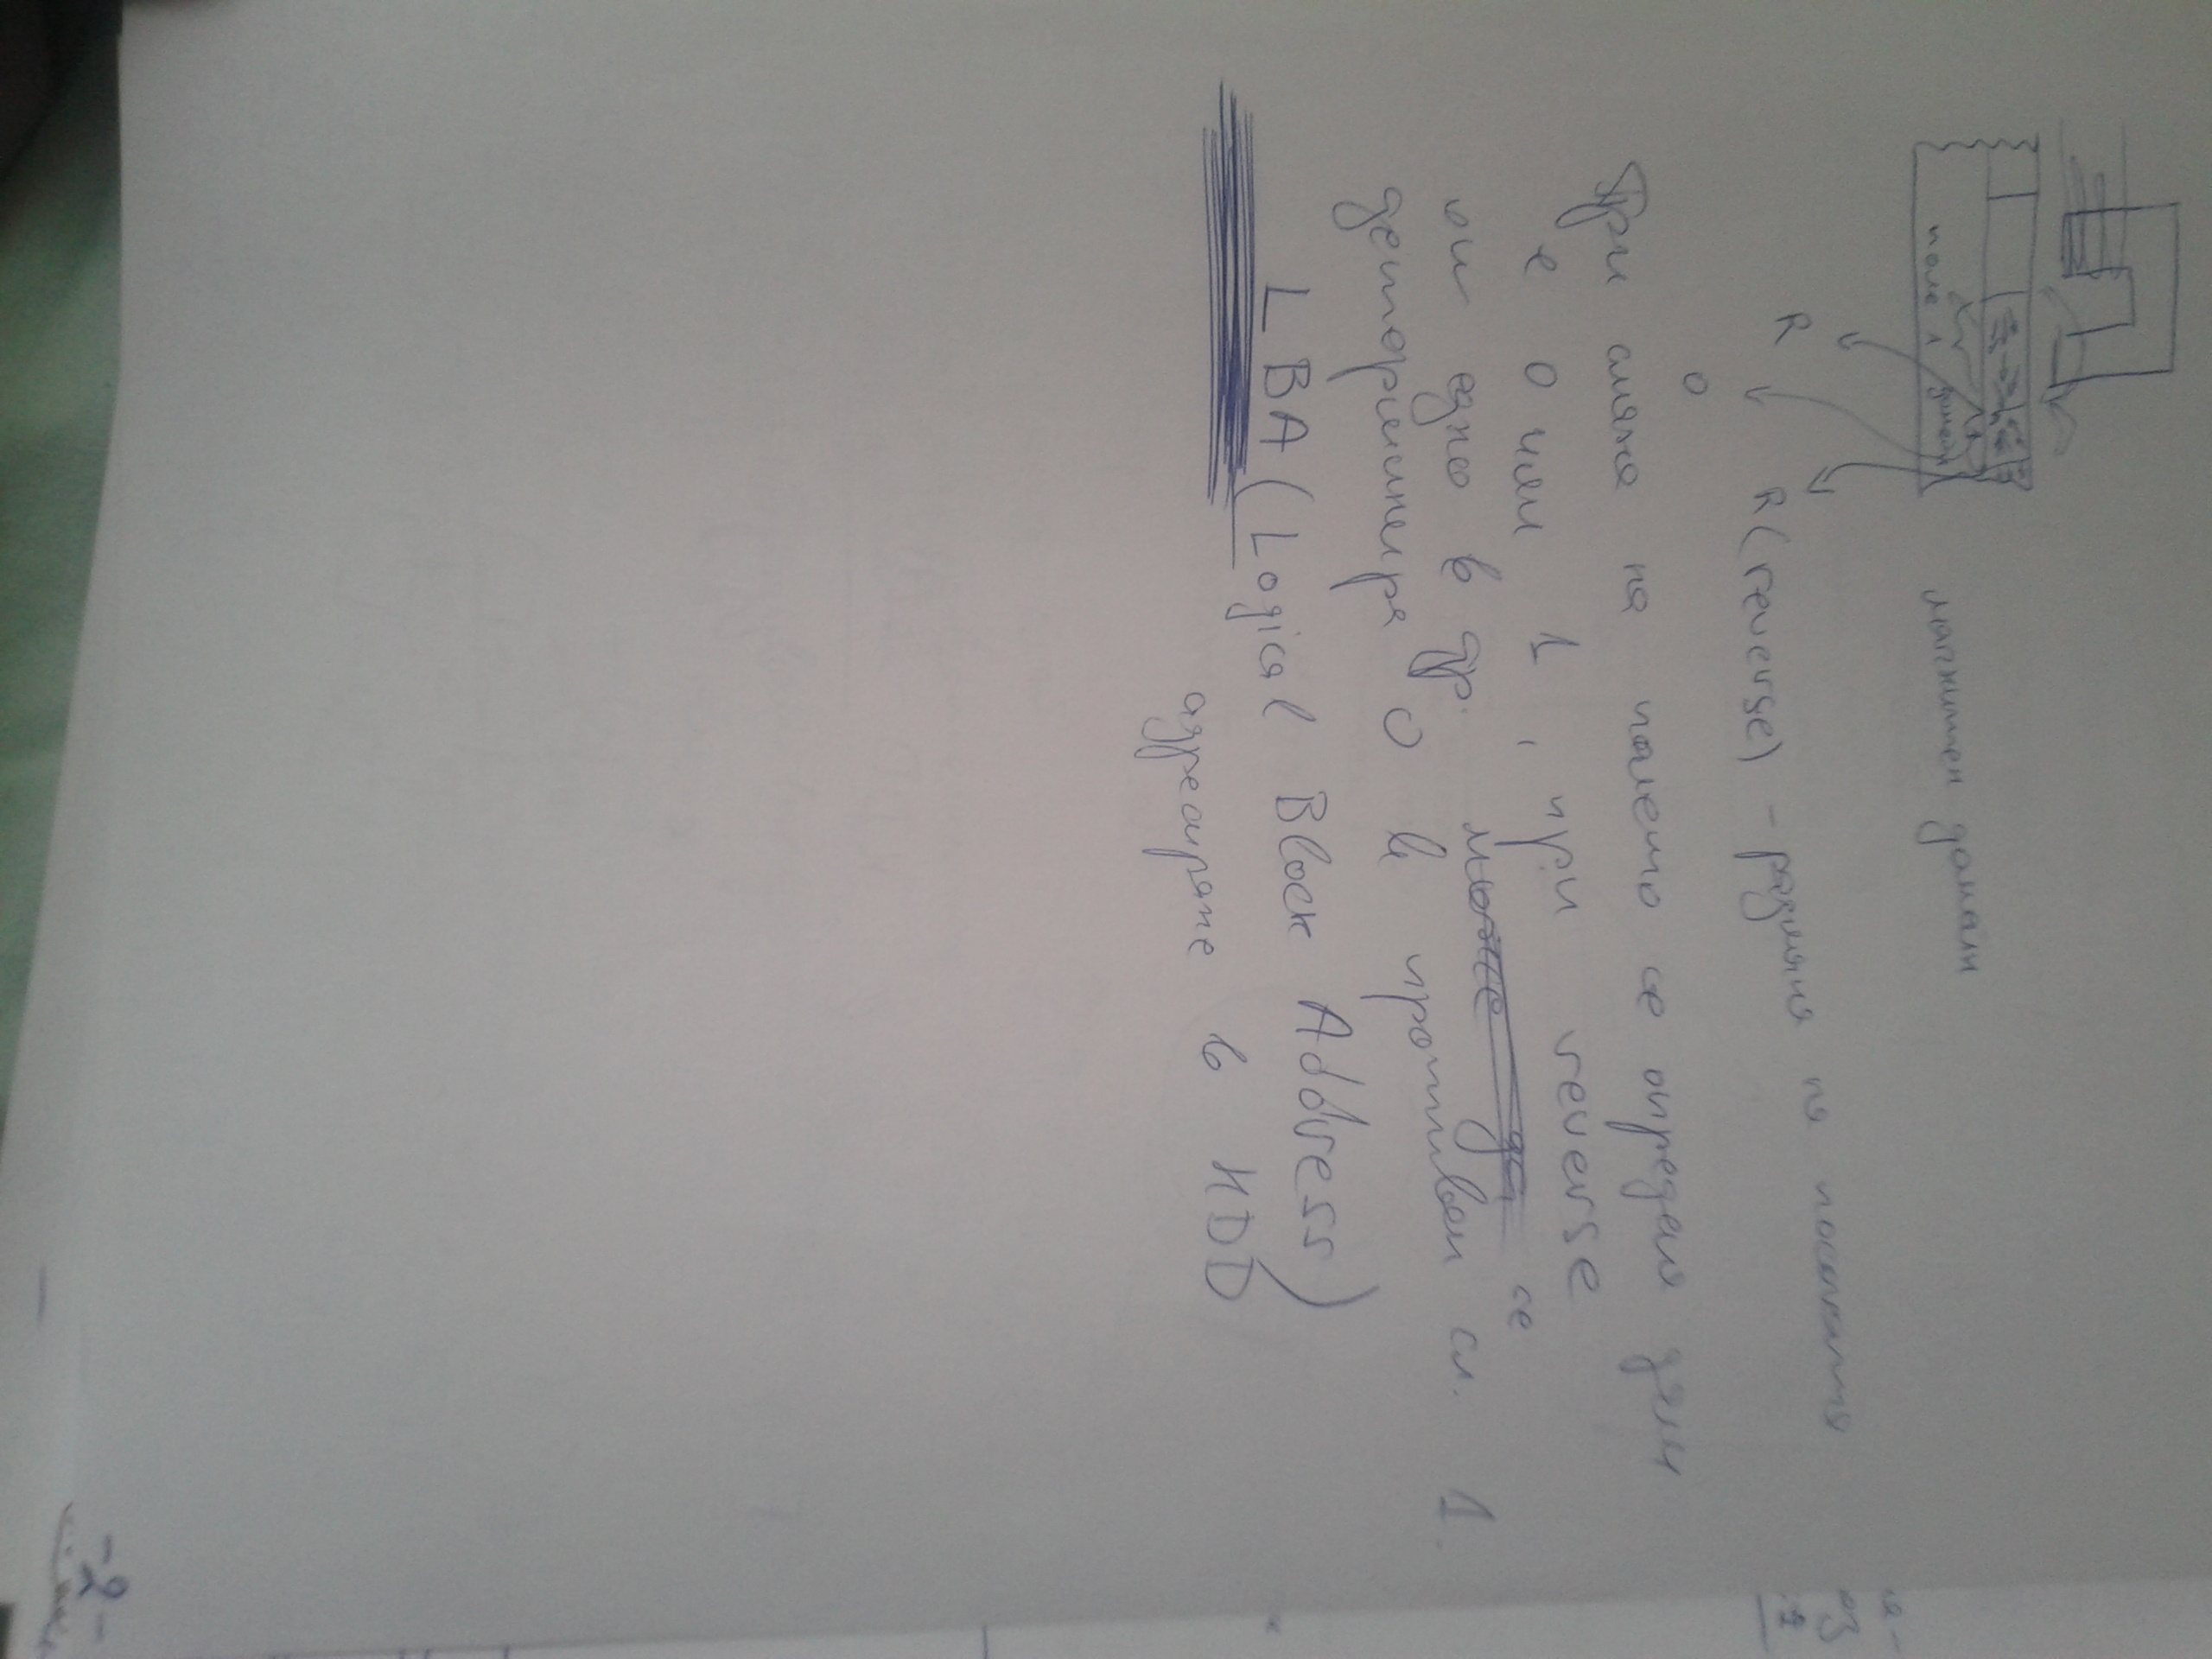 поле 1 домейн
магнитен домейн
R
R (reverse) - размяна на посоката
0
При смяна на полето се определя дали
е 0 или 1, при reverse
от едно в др. може да се
детерминира 0 в противен сл. 1.
LBA (Logical Block Address)
адресиране в HDD
-2-